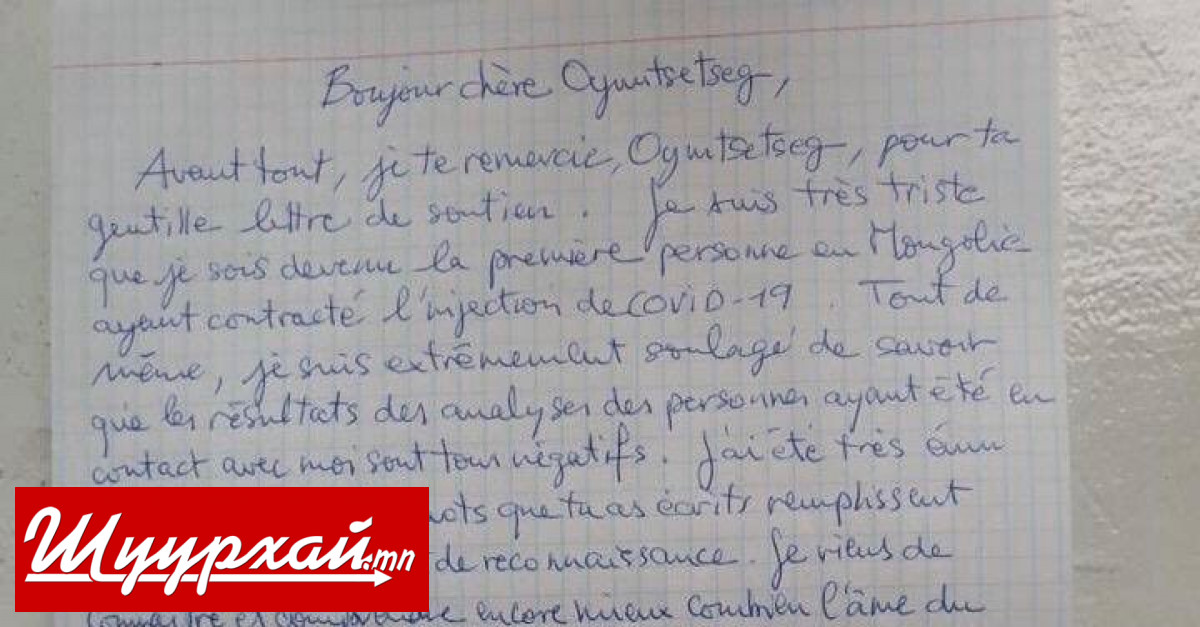 Boujour chère Oyuntsetseg,
Avant tout, je te remercie, Oyuntsetseg, pour ta
gentille lettre de soutien. Je suis très triste
que je sois devenu la première personne en Mongolie
ayant contracté l'injection de COVID-19. Tout de
même, je suis extrêmement soulagé de savoir
que les résultats des analyses des personnes ayant été en
contact avec moi sont tous négatifs. J'ai été très ému
mots que tu as écrits remplissent
de reconnaissance. Je viens de
encore mieux combien l'âme du
Шуурхай.mn